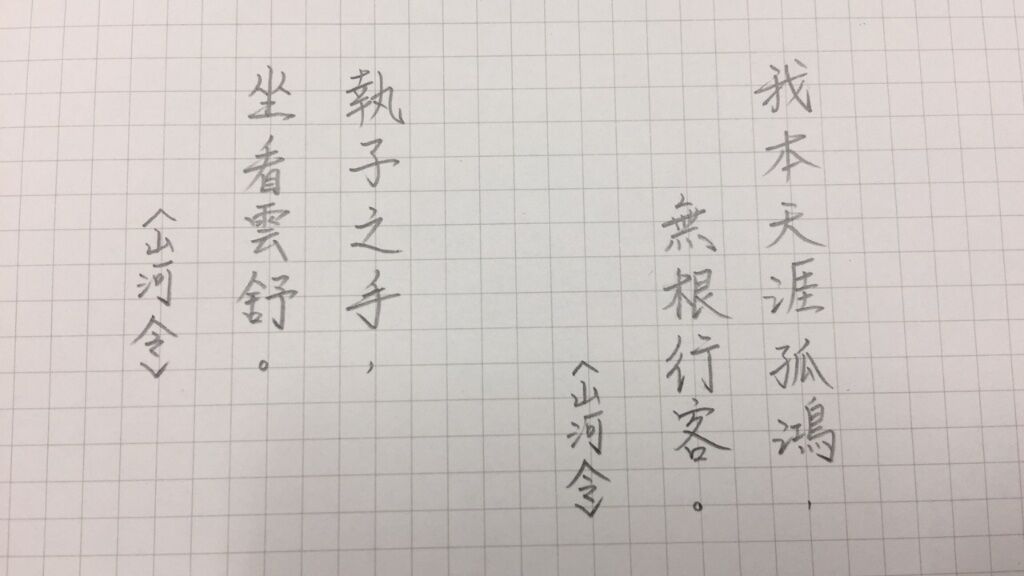 我本天涯孤鴻，
無根行客。
〈山河令〉
執子之手，
坐看雲舒。
〈山河令〉